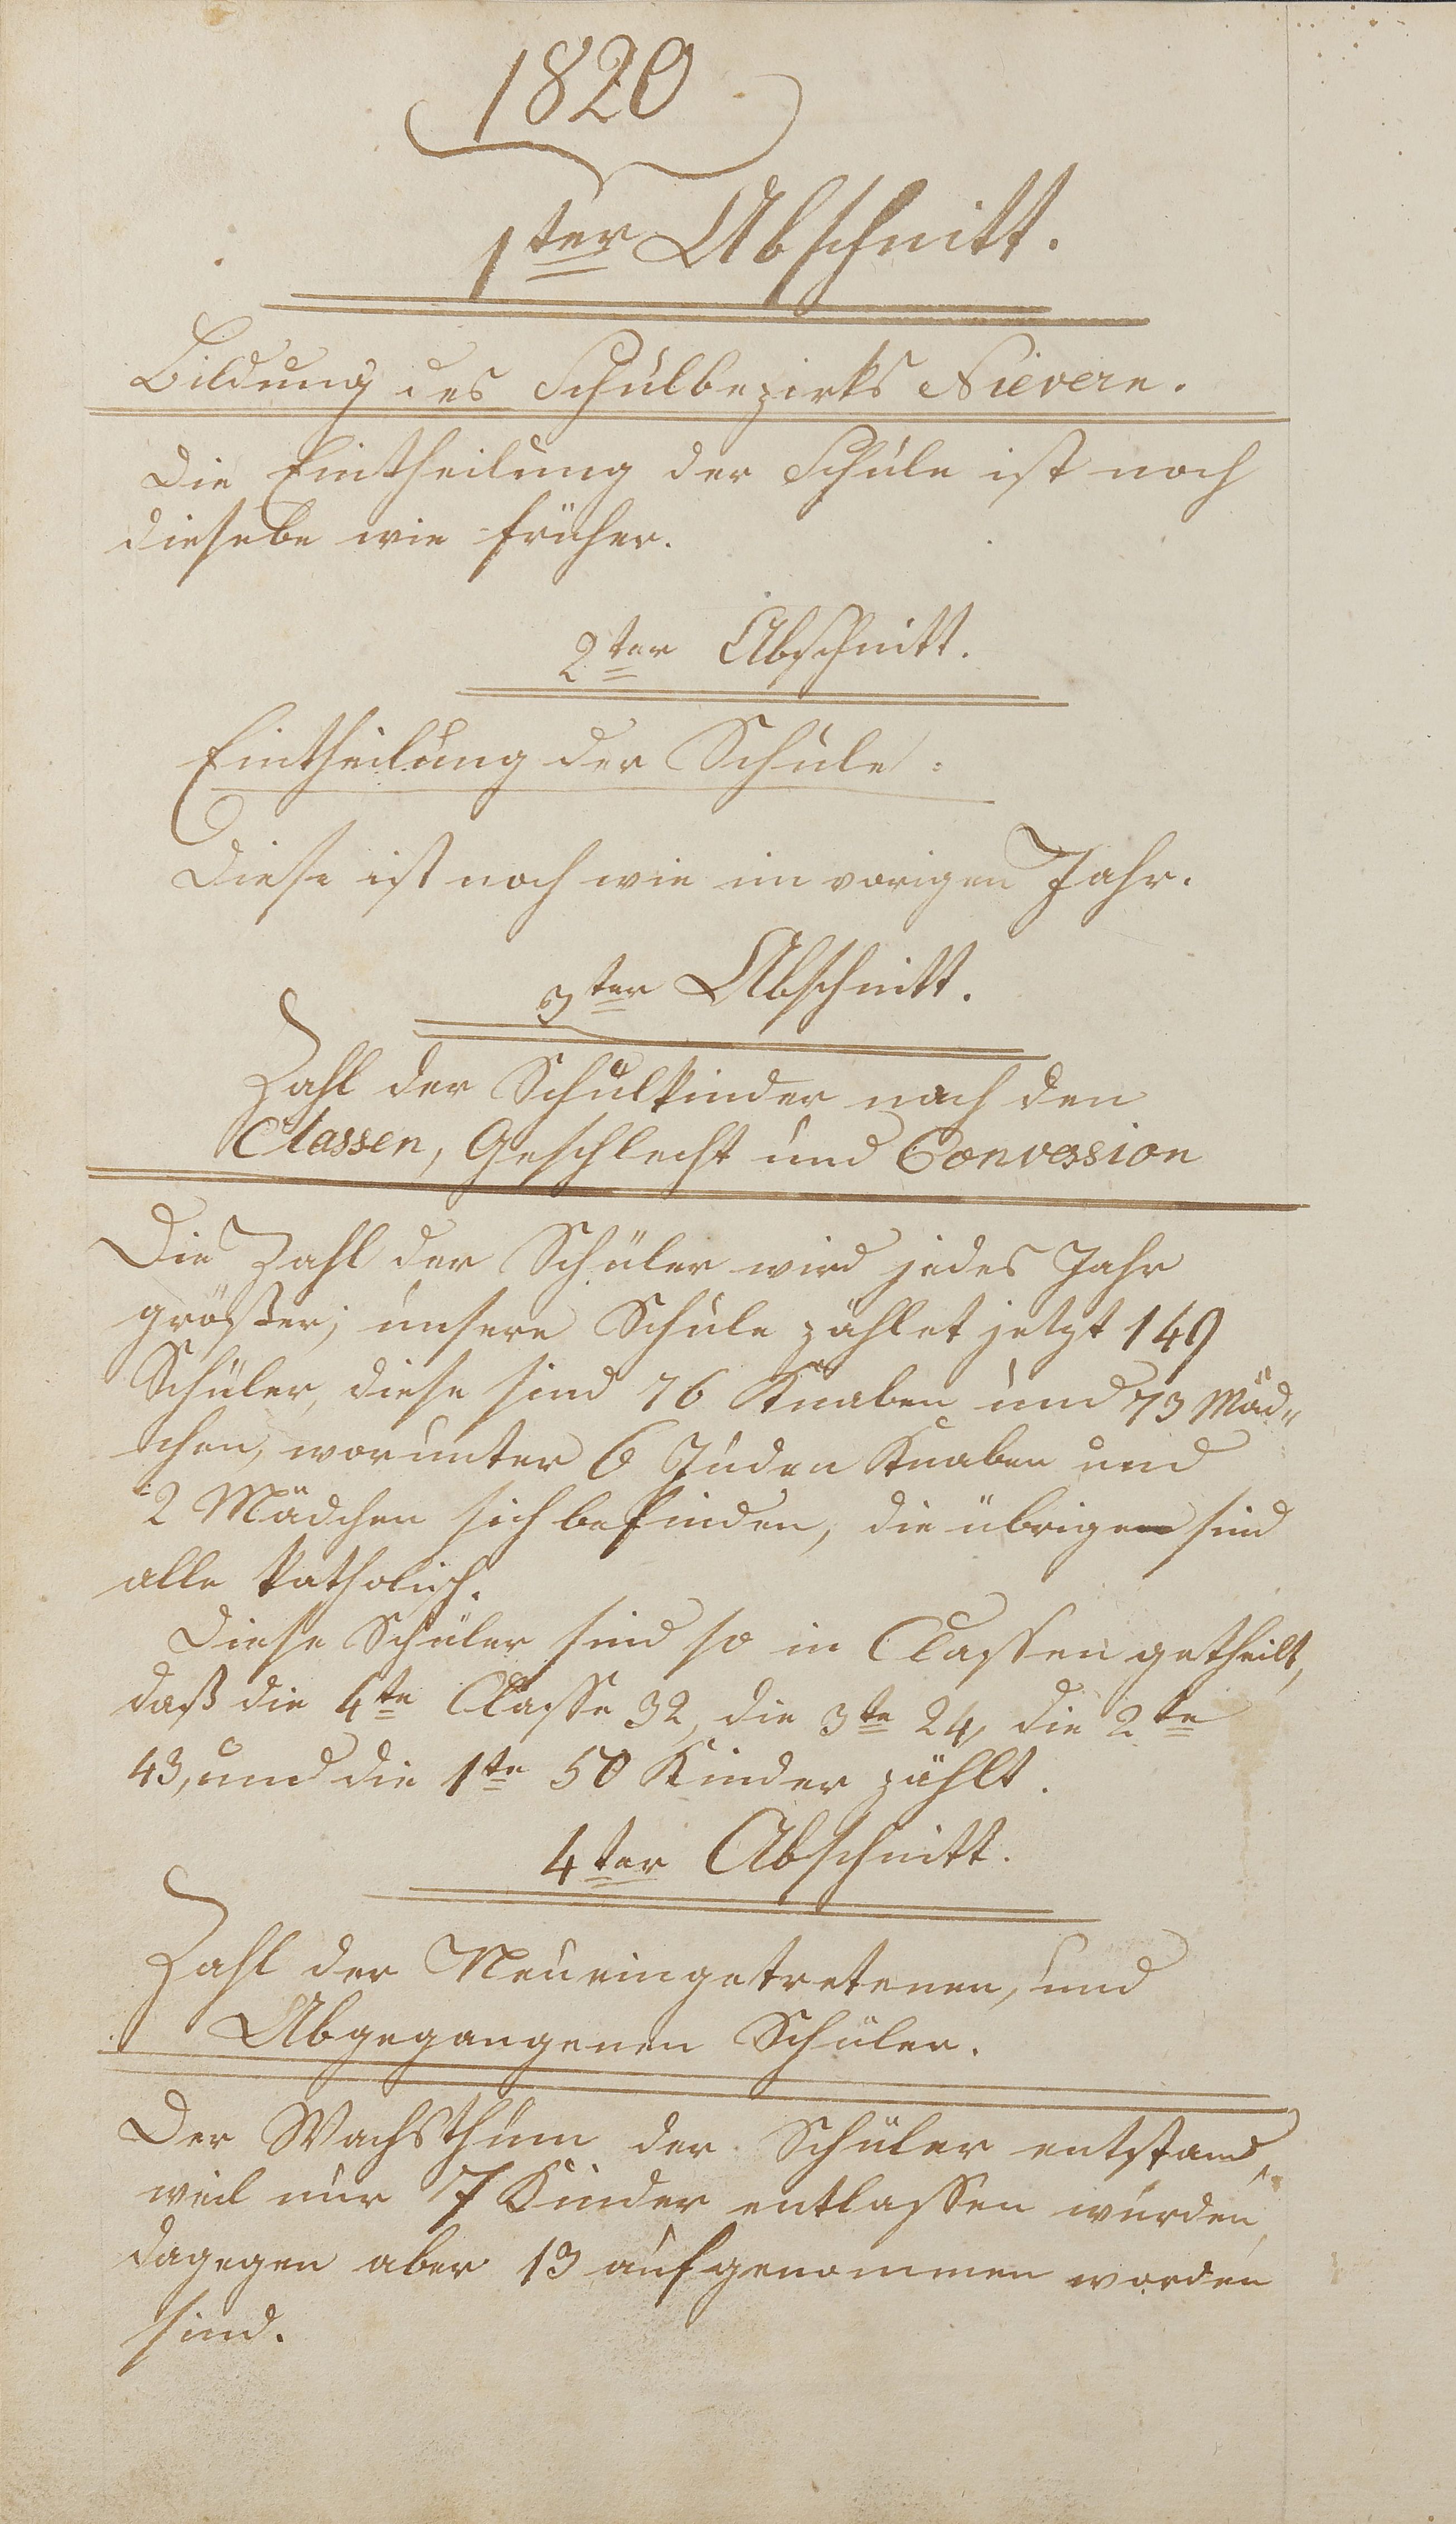 1820
1ter Abschnitt.
Bildung des Schulbezirks Nievern.
Die Eintheilung der Schule ist noch
diesebe wie früher.
2ter Abschnitt.
Eintheilung der Schule:
Diese ist noch wie im vorigen Jahr.
3ter Abschnitt.
Zahl der Schulkinder nach den
Classen, Geschlecht und Convession
Die Zahl der Schüler wird jedes Jahr
größer; unsere Schule zählet jetzt 149
Schüler, diese sind 76 Knaben und 73 Mäd„
chen, worunter 6 Juden Knaben und
2 Mädchen sich befinden, die übrigen sind
alle katholisch.
Diese Schüler sind so in Classen getheilt,
daß die 4te Classe 32, die 3te 24, die 2te
43, und die 1te 50 Kinder zählt.
4ter Abschnitt.
Zahl der Neueingetretenen, und
Abgegangenen Schüler.
Der Wachsthum der Schüler entstand,
weil nur 7 Kinder entlassen wurden,
dagegen aber 13 aufgenommen worden
sind.